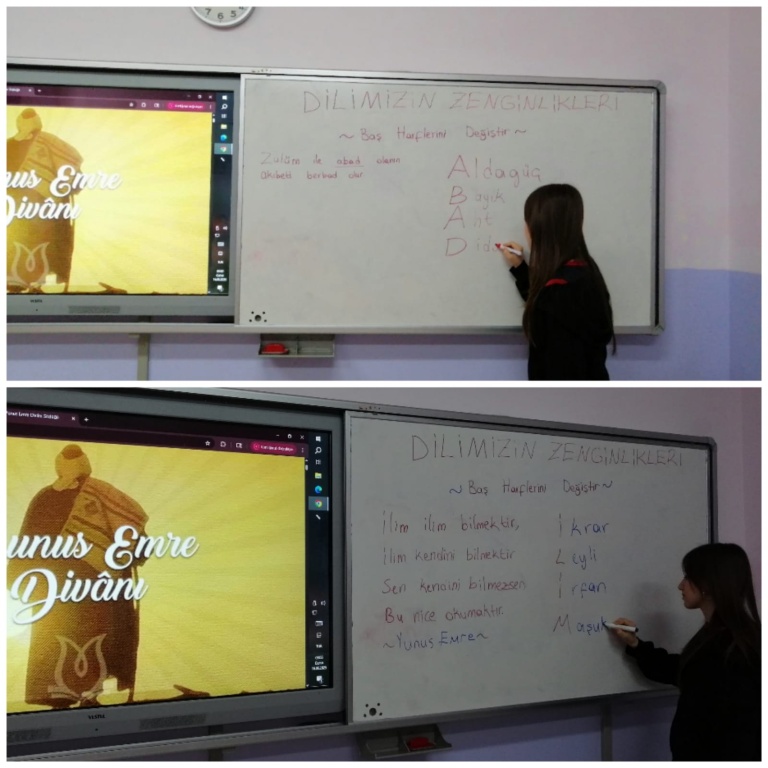 nus Emre
Divânı
DİLİMİZİN ZENGİNLİKLERİ
~ Baş Harflerini Değiştir ~
Zulüm ile abad olanın
akıbeti berbad olur
Aldagüç
Bayık
Ant
Dida
unus Emre
Divânı
DİLİMİZİN ZENGİNLİKLERİ
~ Baş Harflerini Değiştir ~
İlim ilim bilmektir,
İlim kendini bilmektir
Sen kendini bilmezsen
Bu nice okumaktır.
~Yunus Emre~
İkrar
Leyli
İrfan
Maşuk